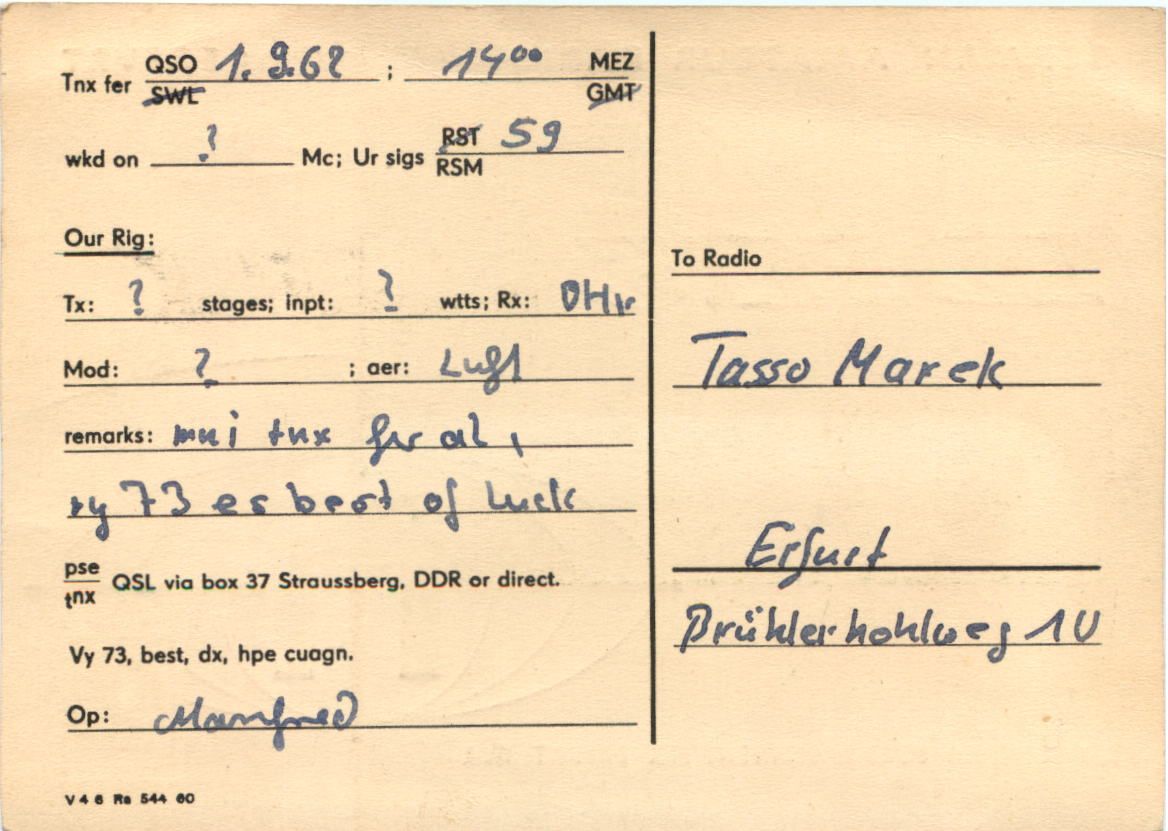 Tnx fer QSO 1. 9.62 ; 14⁰⁰ MEZ
SWL GMT
wkd on ? Mc; Ur sigs RST 59
RSM
Our Rig:
Tx: ? stages; inpt: ? wtts; Rx: OHr
Mod: ? ; aer: Luft
remarks: mni tnx fr al,
vy 73 es best of luck
pse
tnx QSL via box 37 Straussberg, DDR or direct.
Vy 73, best, dx, hpe cuagn.
Op: Manfred
V 4 6 Rs 544 60
To Radio
Tasso Marek
Erfurt
Brühlerhohlweg 10